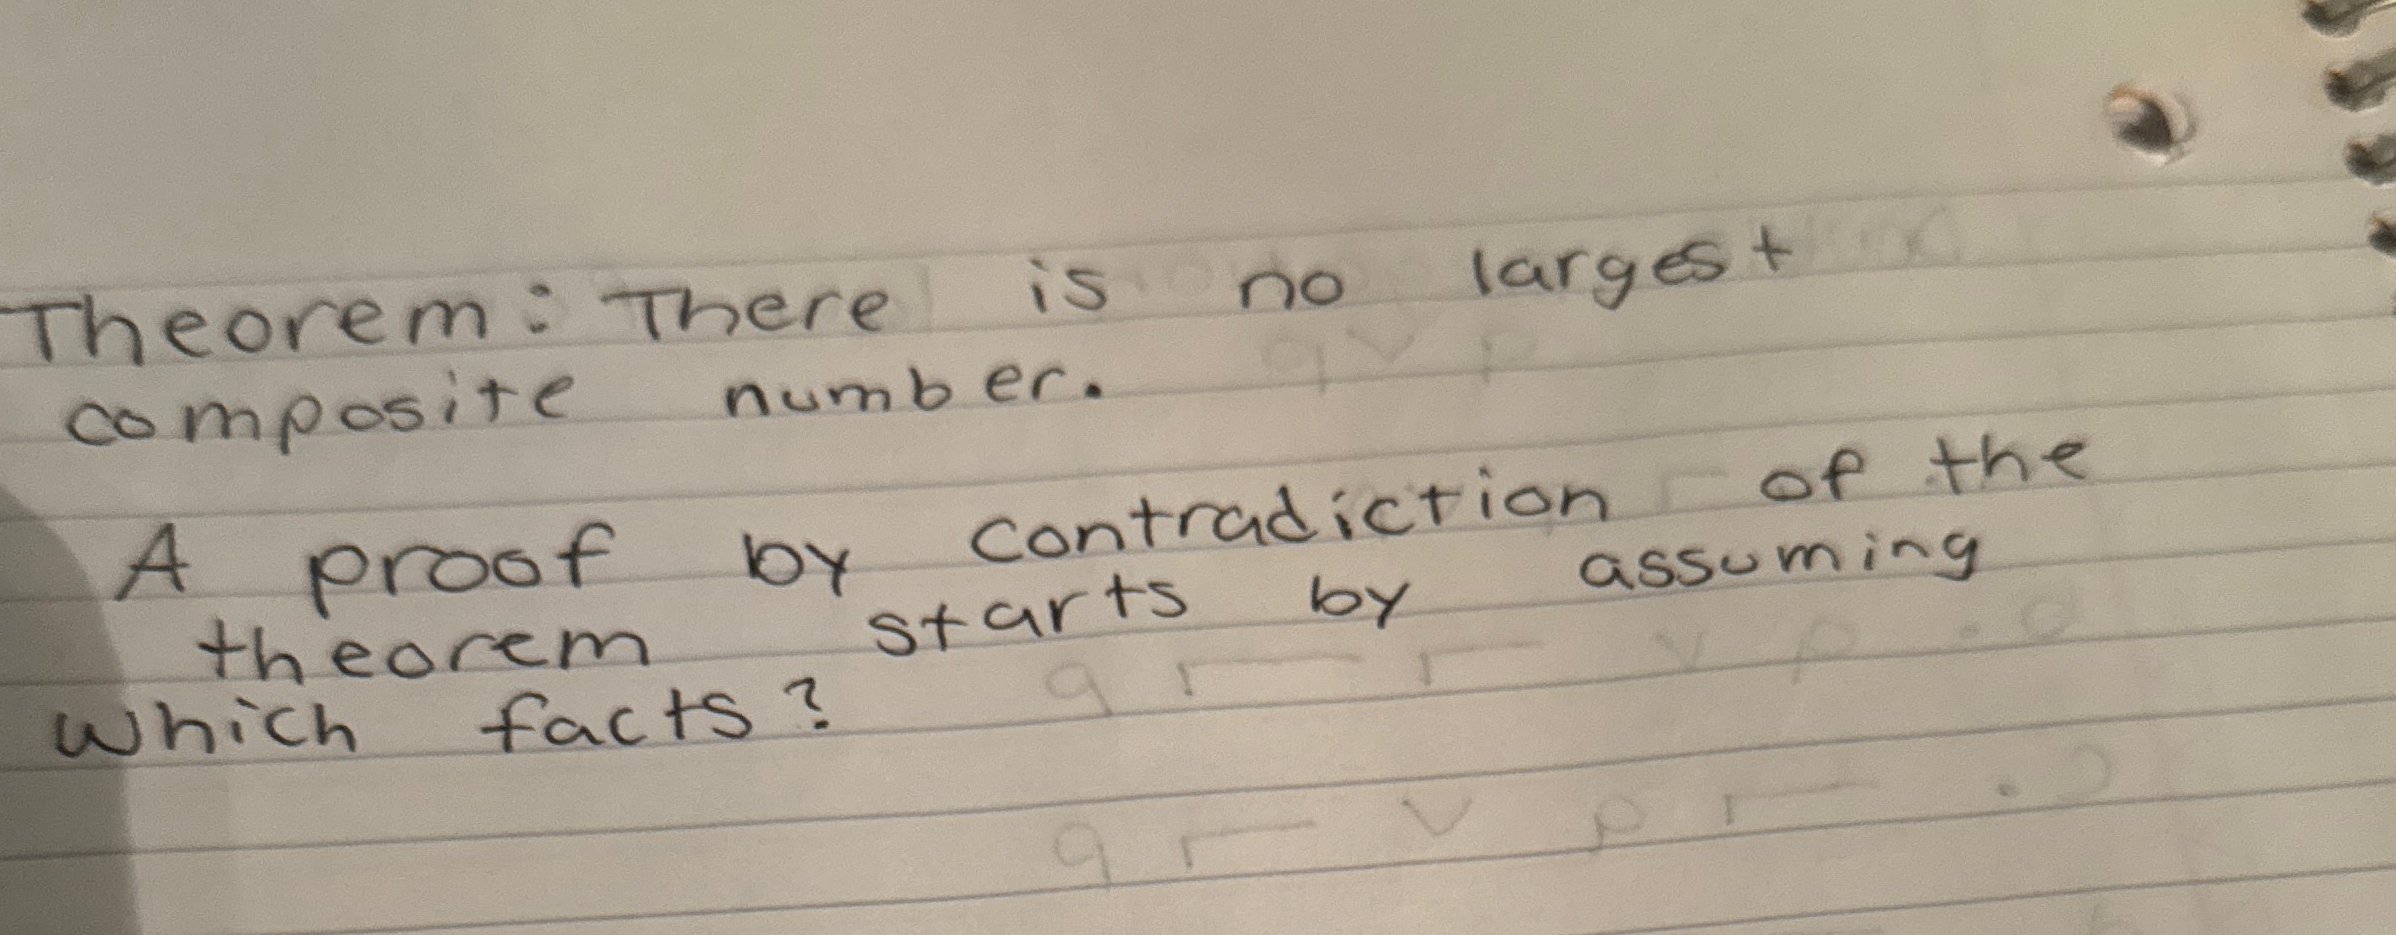 Theorem: There is no largest
composite number.
A proof by contradiction of the
theorem starts by assuming
which facts?